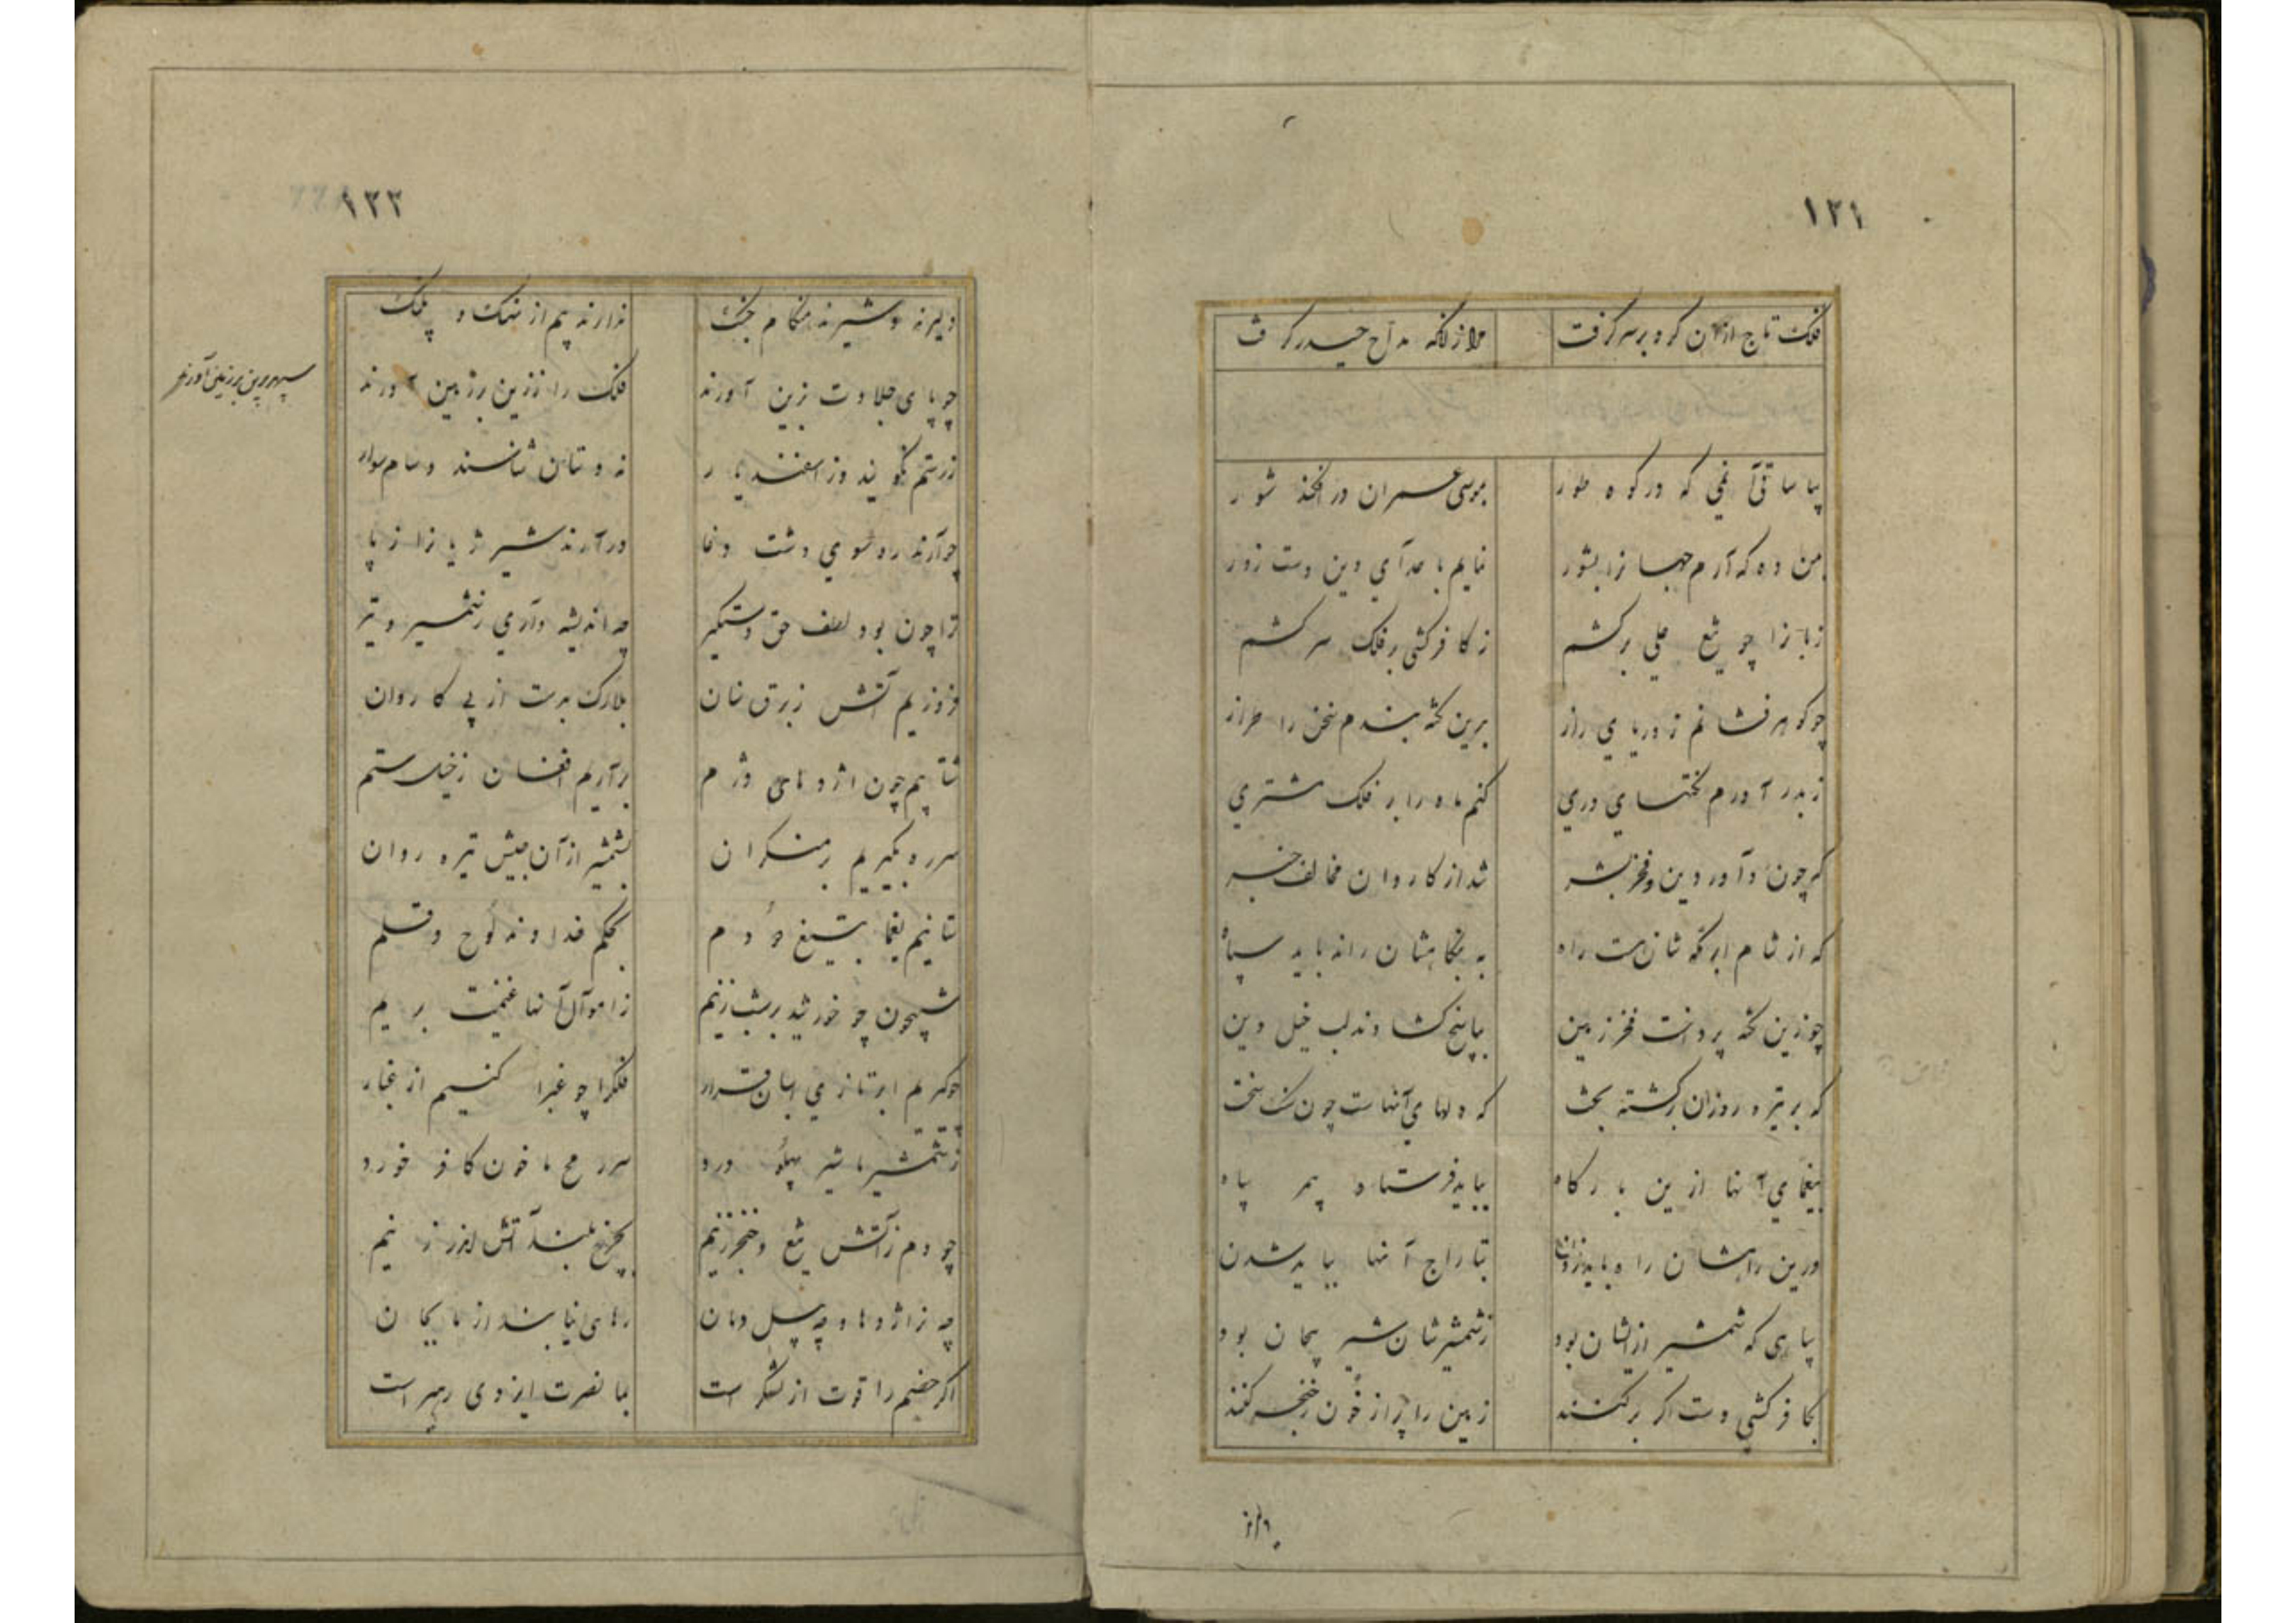 ۱۲۱
فلک تاج ازان کرد بر سر گرفت ملازانکه مداح حیدر گرفت
بیا ساقی آن می که در کوه طور بموسی عمران در افکند شور
بمن ده که آرم جهانرا بشور نمایم باعدآی دین دست زور
زبانرا چو تیغ علی برکشم ز کافرکشی بر فلک سر کشم
چو گوهر فشانم ز دریای راز برین نکته بندم سخن را طراز
ز بدر آورم نکتهای دری کنم ماه را بر فلک مشتری
که چون داور دین و فخر بشر شد از کاروان مخالف خبر
که از شام ابر مکه شانست راه به یغمایشان راند باید سپاه
چو زین نکته پرداخت فخر زمین بپاسخ گشادند لب خیل دین
که بر تیره روزان برگشته بخت که دلهای آنهاست چون سنگ سخت
بیغمای آنها ازین بارگاه بباید فرستاد پیمر سپاه
درین راهشان راه باید زدن بتاراج آنها بباید شدن
سپاهی که شمشیر ازیشان بود ز شمشیرشان شیر پیچان بود
بکافرکشی دست اگر برکنند زمین را پر از خون ز خنجر کنند
۱۲۲
دلیرند و شیرند هنگام جنگ ندارند بیم از نهنگ و پلنگ
چو پای جلادت بزین آورند فلک را ز زین بر زمین آورند
سپهر برین بر زمین آورند
ز رستم نگویند وز اسفندیار نه دستان شناسند و سام سوار
چو آرند ره سوی دشت وغا درآرند شیر ژیانرا ز پا
ترا چون بود لطف حق دستگیر چه اندیشه داری ز شمشیر و تیر
فروزیم آتش ز برق سنان بلارک بدست از پی کاروان
شتابیم چون اژدهای دژم برآریم افغان ز خیل ستم
سر ره بگیریم بر منکران بشمشیر از آن جیش تیره روان
ستانیم یغما بتیغ دو دم بحکم خداوند لوح و قلم
شبیخون چو خورشید بر شب زنیم ز اموآل آنها غنیمت بریم
چو گیریم ابر تازی اسبان قرار فلکرا چو غبرا کنیم از غبار
ز شمشیر ما شیر پهلو درد سر رمح ما خون کافر خورد
چو دم ز آتش تیغ و خنجر زنیم بچرخ بلند آتش اندر زنیم
چه نر اژدها و چه پیل دمان رهای نیابند از ما بجان
اگر خصم را قوت از لشکر است بما نصرت ایزدی رهبر است